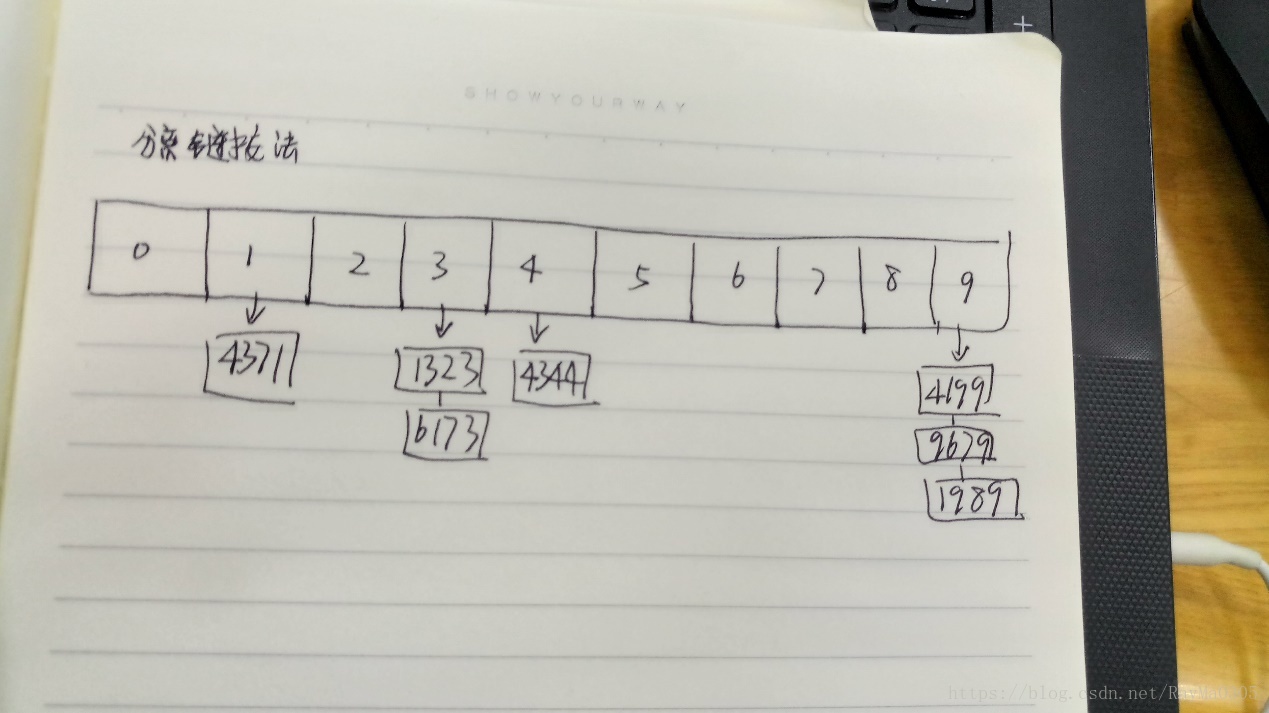 SHOWYOURWAY
分离链接法
0 1 2 3 4 5 6 7 8 9
4371 1323 4344 4199
6173 9679
1989